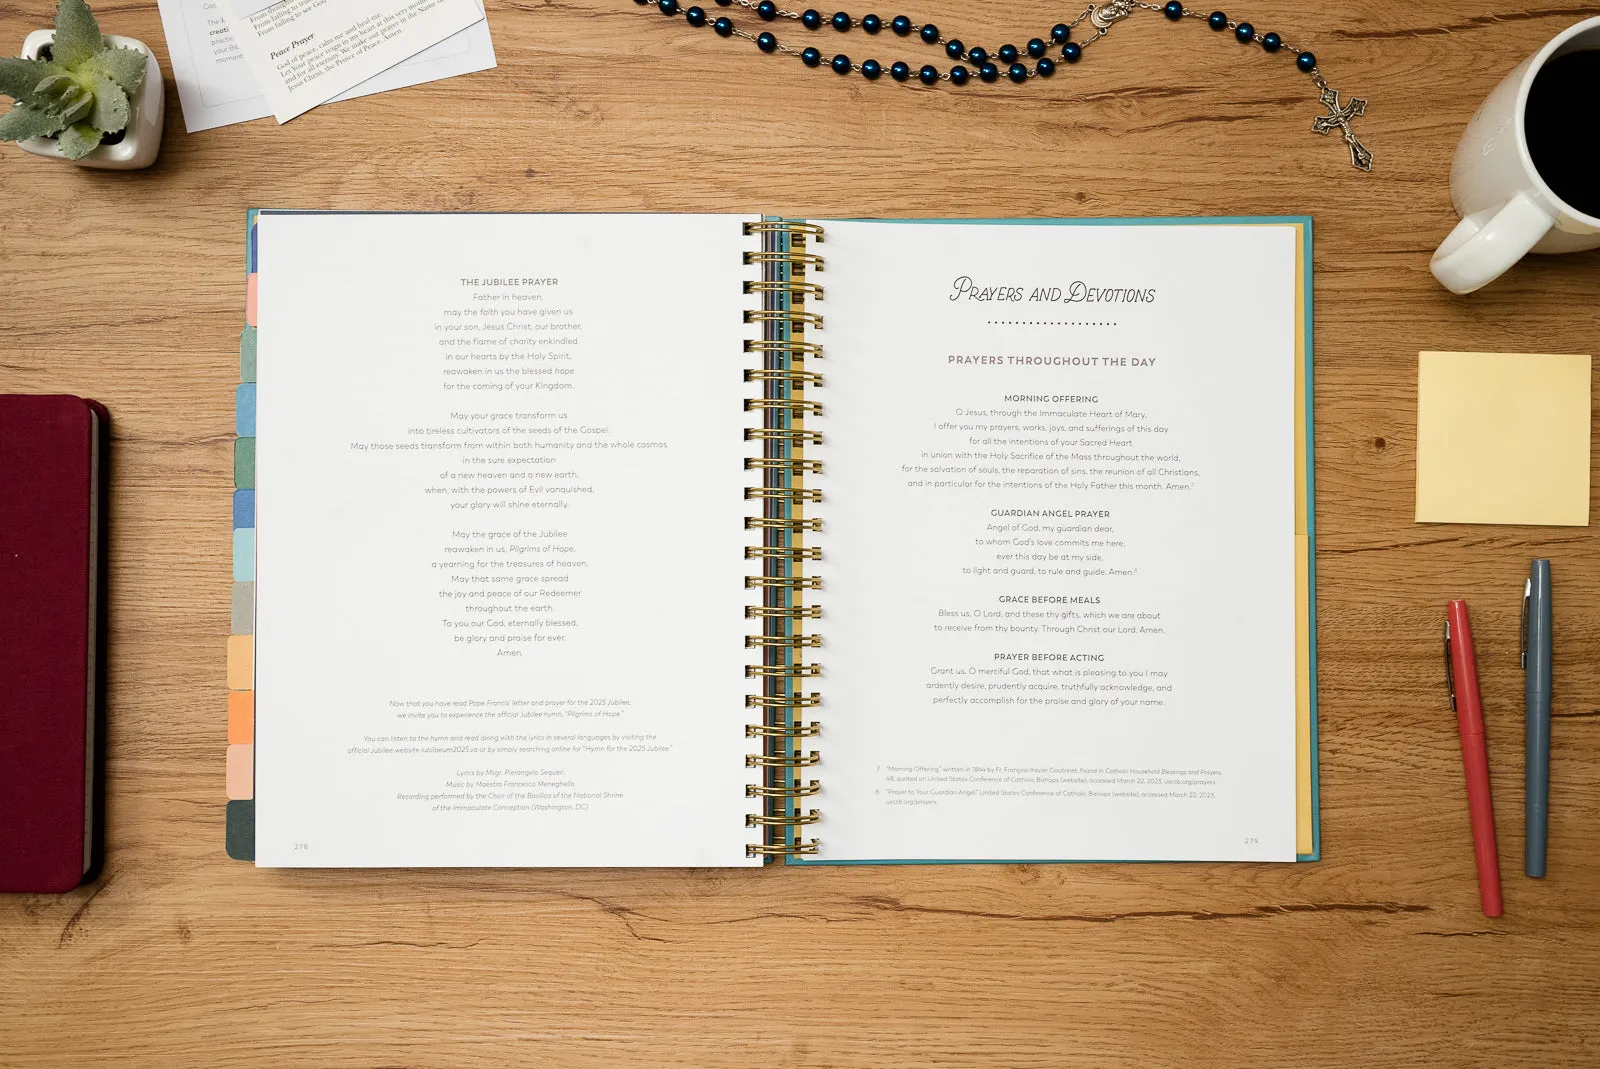 God
The J
creati
practic
your Bit
moment
From though
From failing to trus
From failing to see God
Peace Prayer
God of peace, calm me and heal me.
Let Your peace reign in my heart at this very moment
and for all eternity. We make our prayer in the Name of
Jesus Christ, the Prince of Peace. Amen.
THE JUBILEE PRAYER
Father in heaven,
may the faith you have given us
in your son, Jesus Christ, our brother,
and the flame of charity enkindled
in our hearts by the Holy Spirit,
reawaken in us the blessed hope
for the coming of your Kingdom.
May your grace transform us
into tireless cultivators of the seeds of the Gospel.
May those seeds transform from within both humanity and the whole cosmos
in the sure expectation
of a new heaven and a new earth,
when, with the powers of Evil vanquished,
your glory will shine eternally.
May the grace of the Jubilee
reawaken in us, Pilgrims of Hope,
a yearning for the treasures of heaven.
May that same grace spread
the joy and peace of our Redeemer
throughout the earth.
To you our God, eternally blessed,
be glory and praise for ever.
Amen.
Now that you have read Pope Francis' letter and prayer for the 2025 Jubilee,
we invite you to experience the official Jubilee hymn, "Pilgrims of Hope."
You can listen to the hymn and read along with the lyrics in several languages by visiting the
official Jubilee website iubilaeum2025.va or by simply searching online for "Hymn for the 2025 Jubilee."
Lyrics by Msgr. Pierangelo Sequeri
Music by Maestro Francesco Meneghello
Recording performed by the Choir of the Basilica of the National Shrine
of the Immaculate Conception (Washington, DC)
278
PRAYERS AND DEVOTIONS
PRAYERS THROUGHOUT THE DAY
MORNING OFFERING
O Jesus, through the Immaculate Heart of Mary,
I offer you my prayers, works, joys, and sufferings of this day
for all the intentions of your Sacred Heart
in union with the Holy Sacrifice of the Mass throughout the world,
for the salvation of souls, the reparation of sins, the reunion of all Christians,
and in particular for the intentions of the Holy Father this month. Amen.7
GUARDIAN ANGEL PRAYER
Angel of God, my guardian dear,
to whom God's love commits me here,
ever this day be at my side,
to light and guard, to rule and guide. Amen.8
GRACE BEFORE MEALS
Bless us, O Lord, and these thy gifts, which we are about
to receive from thy bounty. Through Christ our Lord. Amen.
PRAYER BEFORE ACTING
Grant us, O merciful God, that what is pleasing to you I may
ardently desire, prudently acquire, truthfully acknowledge, and
perfectly accomplish for the praise and glory of your name.
7. "Morning Offering," written in 1844 by Fr. François-Xavier Gautrelet, found in Catholic Household Blessings and Prayers,
48, quoted on United States Conference of Catholic Bishops (website), accessed March 22, 2023, usccb.org/prayers.
8. "Prayer to Your Guardian Angel," United States Conference of Catholic Bishops (website), accessed March 22, 2023,
usccb.org/prayers.
279